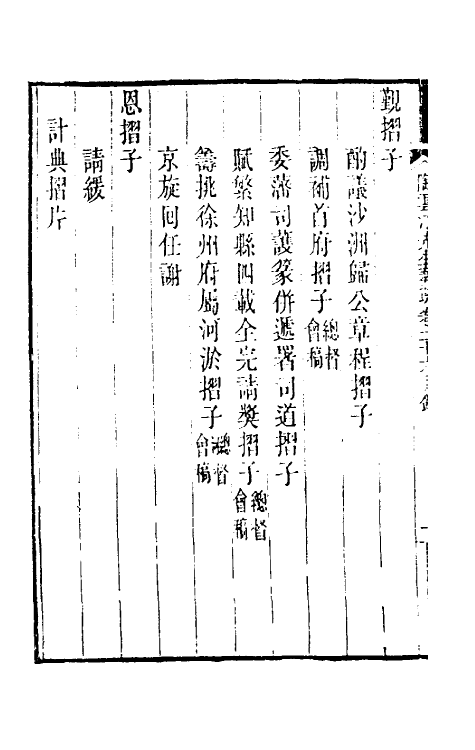 覲摺子
酌議沙洲歸公章程摺子
調補首府摺子總督會稿
委藩司護篆併遞署司道摺子
賦繁知縣四載全完請獎摺子總督會稿
籌挑徐州府屬河淤摺子總督會稿
京旋囘任謝
恩摺子
請緩
計典摺片